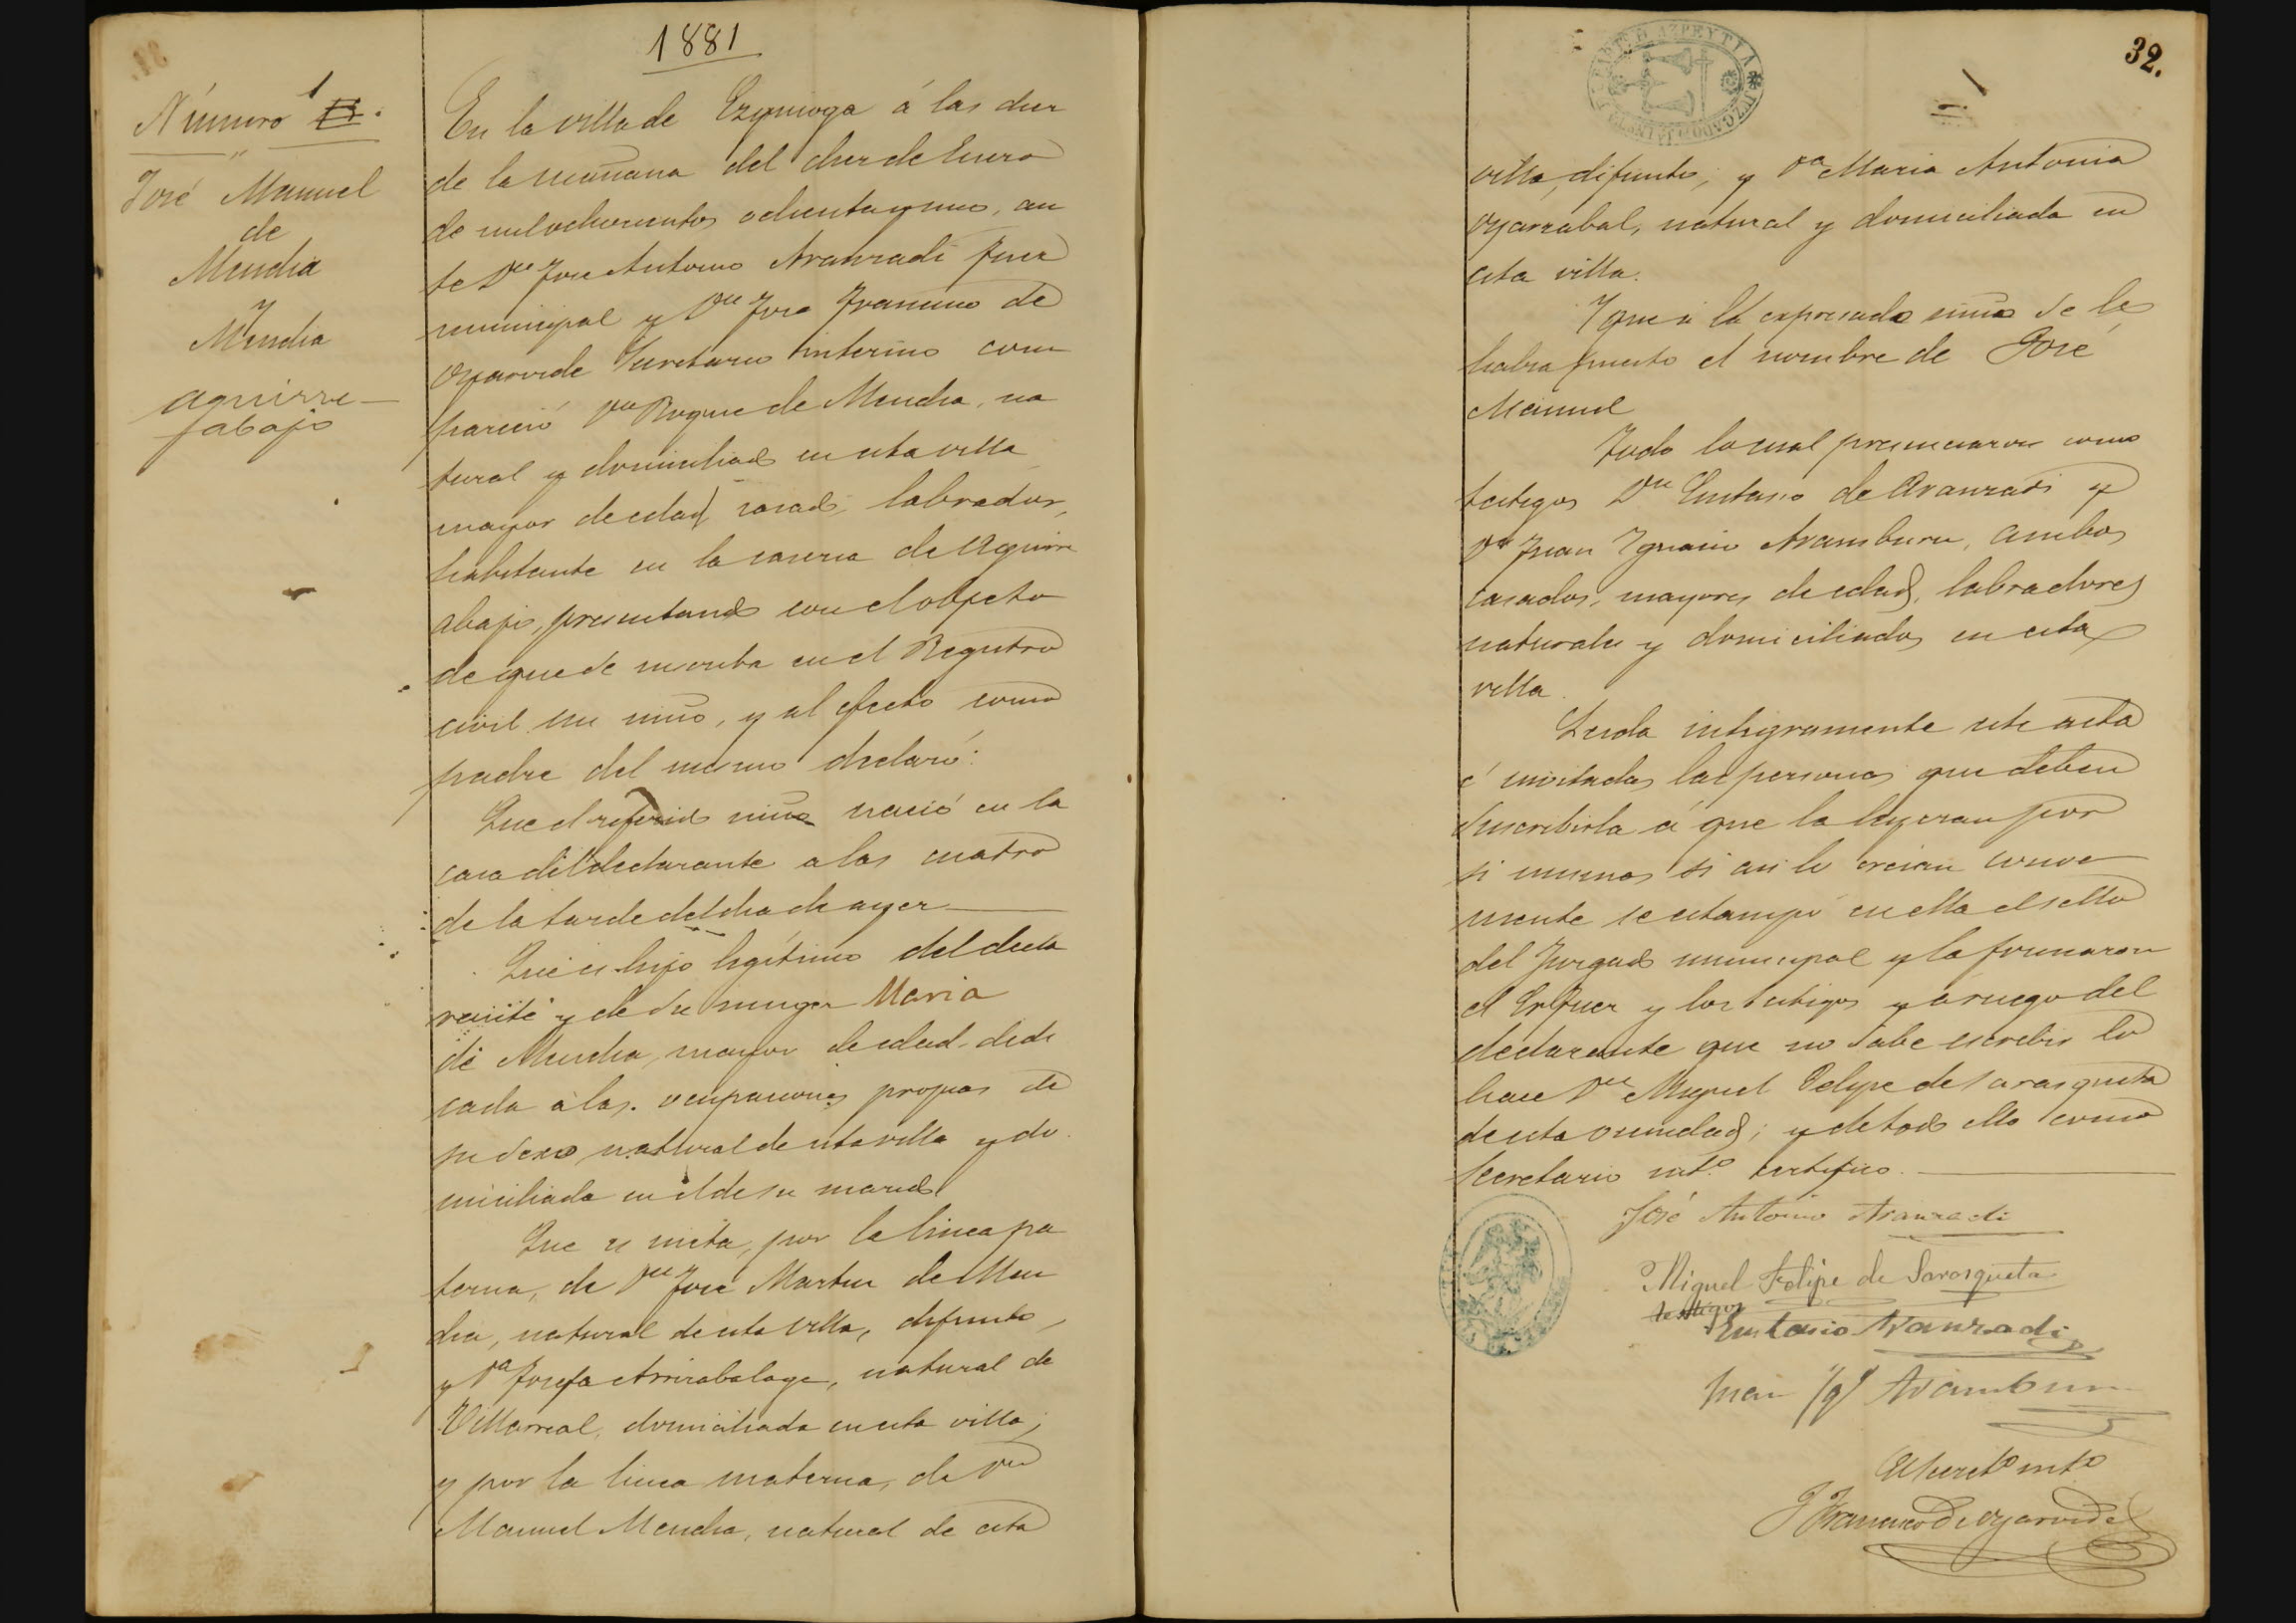 1881
Número 1
José Manuel
de
Mendia
y
Mendia
aguirre-
abajo
En la villa de Ezquioga á las diez
de la mañana del diez de Enero
de mil ochocientos ochenta y uno, an
te Dn Jose Antonio Aranzadi Juez
municipal y Dn Jose Francisco de
Oyarvide Secretario interino com
pareció Dn Roque de Mendia, na
tural y domiciliado en esta villa
mayor de edad, casado, labrador,
habitante en la caseria de Aguirre
abajo, presentando con el objeto
de que se inscriba en el Registro
civil un niño, y al efecto como
padre del mismo declaró:
Que el referido niño nació en la
casa del declarante a las cuatro
de la tarde del dia de ayer
Que es hijo legítimo del decla
rante y de su muger Maria
de Mendia, mayor de edad, dedi
cada á las ocupaciones propias de
su sexo natural de esta villa y do
miciliada en el de su marido
Que es nieto, por la linea pa
terna, de Dn Jose Martin de Men
dia, natural de esta villa, difunto,
y Da Josefa Arrizabalaga, natural de
Villarreal, domiciliada en esta villa;
y por la linea materna, de Dn
Manuel Mendia, natural de esta
32.
1
villa, difunto, y Da Maria Antonia
Oyarzabal, natural y domiciliada en
esta villa.
Y que á la expresado niño se le
habia puesto el nombre de José
Manuel
Todo lo cual presenciaron como
testigos Dn Eustasio de Aranzadi y
Dn Juan Ygnacio Aramburu, ambos
casados, mayores de edad, labradores
naturales y domiciliados en esta
villa.
Leida integramente este acta
é invitadas las personas que deben
suscribirla á que la leyeran por
si mismas si asi lo creian conve
niente se estampó en ella el sello
del Juzgado municipal y la firmaron
el Sr Juez y los testigos y á ruego del
declarante que no sabe escribir lo
hace Dn Miguel Felipe de Sarasqueta
de esta vecindad; y de todo ello como
Secretario into. certifico.
José Antonio Aranzadi
Miguel Felipe de Sarasqueta
testigos
Eustasio Aranzadi
Juan Ygo Aramburu
El Secreto into
J Francisco de Oyarvide